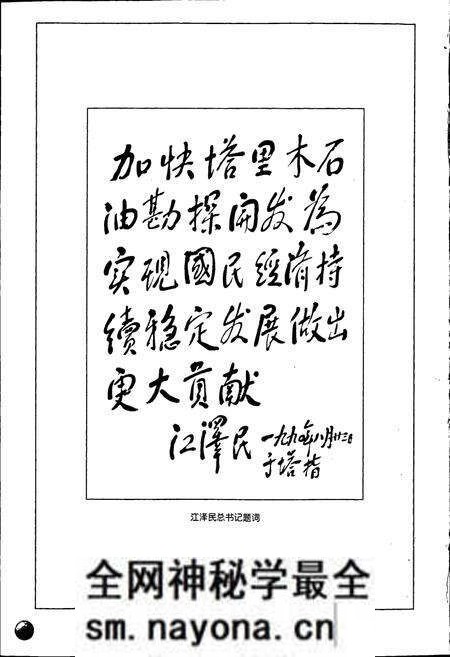 加快塔里木石
油勘探开发为
实现國民經济持
續稳定发展做出
更大貢献
江澤民 一九九〇年八月廿二日
于塔指
江泽民总书记题词
全网神秘学最全
sm.nayona.cn